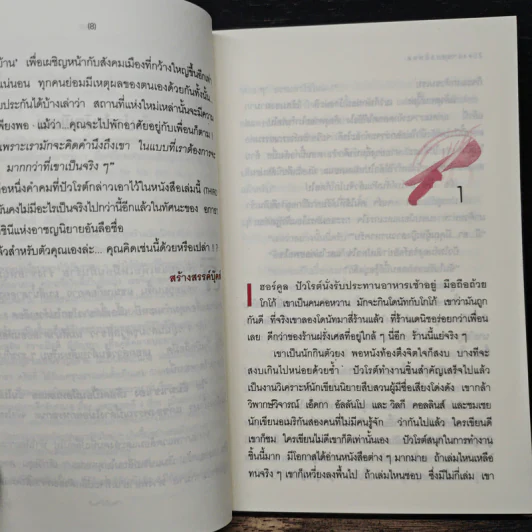 บ้าน' เพื่อเผชิญหน้ากับสังคมเมืองที่กว้างใหญ่ขึ้นอีกเล่า
แน่นอน ทุกคนย่อมมีเหตุผลของตนเองด้วยกันทั้งนั้น...
บประกันได้บ้างเล่าว่า สถานที่แห่งใหม่เหล่านั้นจะมีความ
เพียงพอ แม้ว่า คุณจะไปพักอาศัยอยู่กับเพื่อนก็ตาม !
เพราะเรามักจะคิดคำนึงถึงเขา ในแบบที่เราต้องการจะ
มากกว่าที่เขาเป็นจริง ๆ"
อหนึ่งคำคมที่ปัวโรต์กล่าวเอาไว้ในหนังสือเล่มนี้ (THIRD
นคงไม่มีอะไรเป็นจริงไปกว่านี้อีกแล้วในทัศนะของ อกาธา
ชินีแห่งอาชญนิยายอันลือชื่อ
ล้วสำหรับตัวคุณเองล่ะ... คุณคิดเช่นนี้ด้วยหรือเปล่า ! ?
สร้างสรรค์บุ๊คส์
1
เฮอร์คูล ปัวโรต์นั่งรับประทานอาหารเช้าอยู่ มือถือถ้วย
โกโก้ เขาเป็นคนคอหวาน มักจะกินโดนัทกับโกโก้ เขาว่ามันถูก
กันดี ที่จริงเขาลองโดนัทมาสี่ร้านแล้ว ที่ร้านเดนิชอร่อยกว่าเพื่อน
เลย ดีกว่าของร้านฝรั่งเศสที่อยู่ใกล้ ๆ นี่อีก ร้านนี้แย่จริง ๆ
เขาเป็นนักกินตัวยง พอหนังท้องตึงจิตใจก็สงบ บางทีจะ
สงบเกินไปหน่อยด้วยซ้ำ ปัวโรต์ทำงานชิ้นสำคัญเสร็จไปแล้ว
เป็นงานวิเคราะห์นักเขียนนิยายสืบสวนผู้มีชื่อเสียงโด่งดัง เขากล้า
วิพากษ์วิจารณ์ เอ็ดกา อัลลันโป และ วิลกี คอลลินส์ และชมเชย
นักเขียนอเมริกันสองคนที่ไม่มีคนรู้จัก ว่ากันไปแล้ว ใครเขียนดี
เขาก็ชม ใครเขียนไม่ดีเขาก็ติเท่านั้นเอง ปัวโรต์สนุกในการทำงาน
ชิ้นนี้มาก มีโอกาสได้อ่านหนังสือต่าง ๆ มากมาย ถ้าเล่มไหนเหลือ
ทนจริง ๆ เขาก็เหวี่ยงลงพื้นไป ถ้าเล่มไหนชอบ ซึ่งมีไม่กี่เล่ม เขา